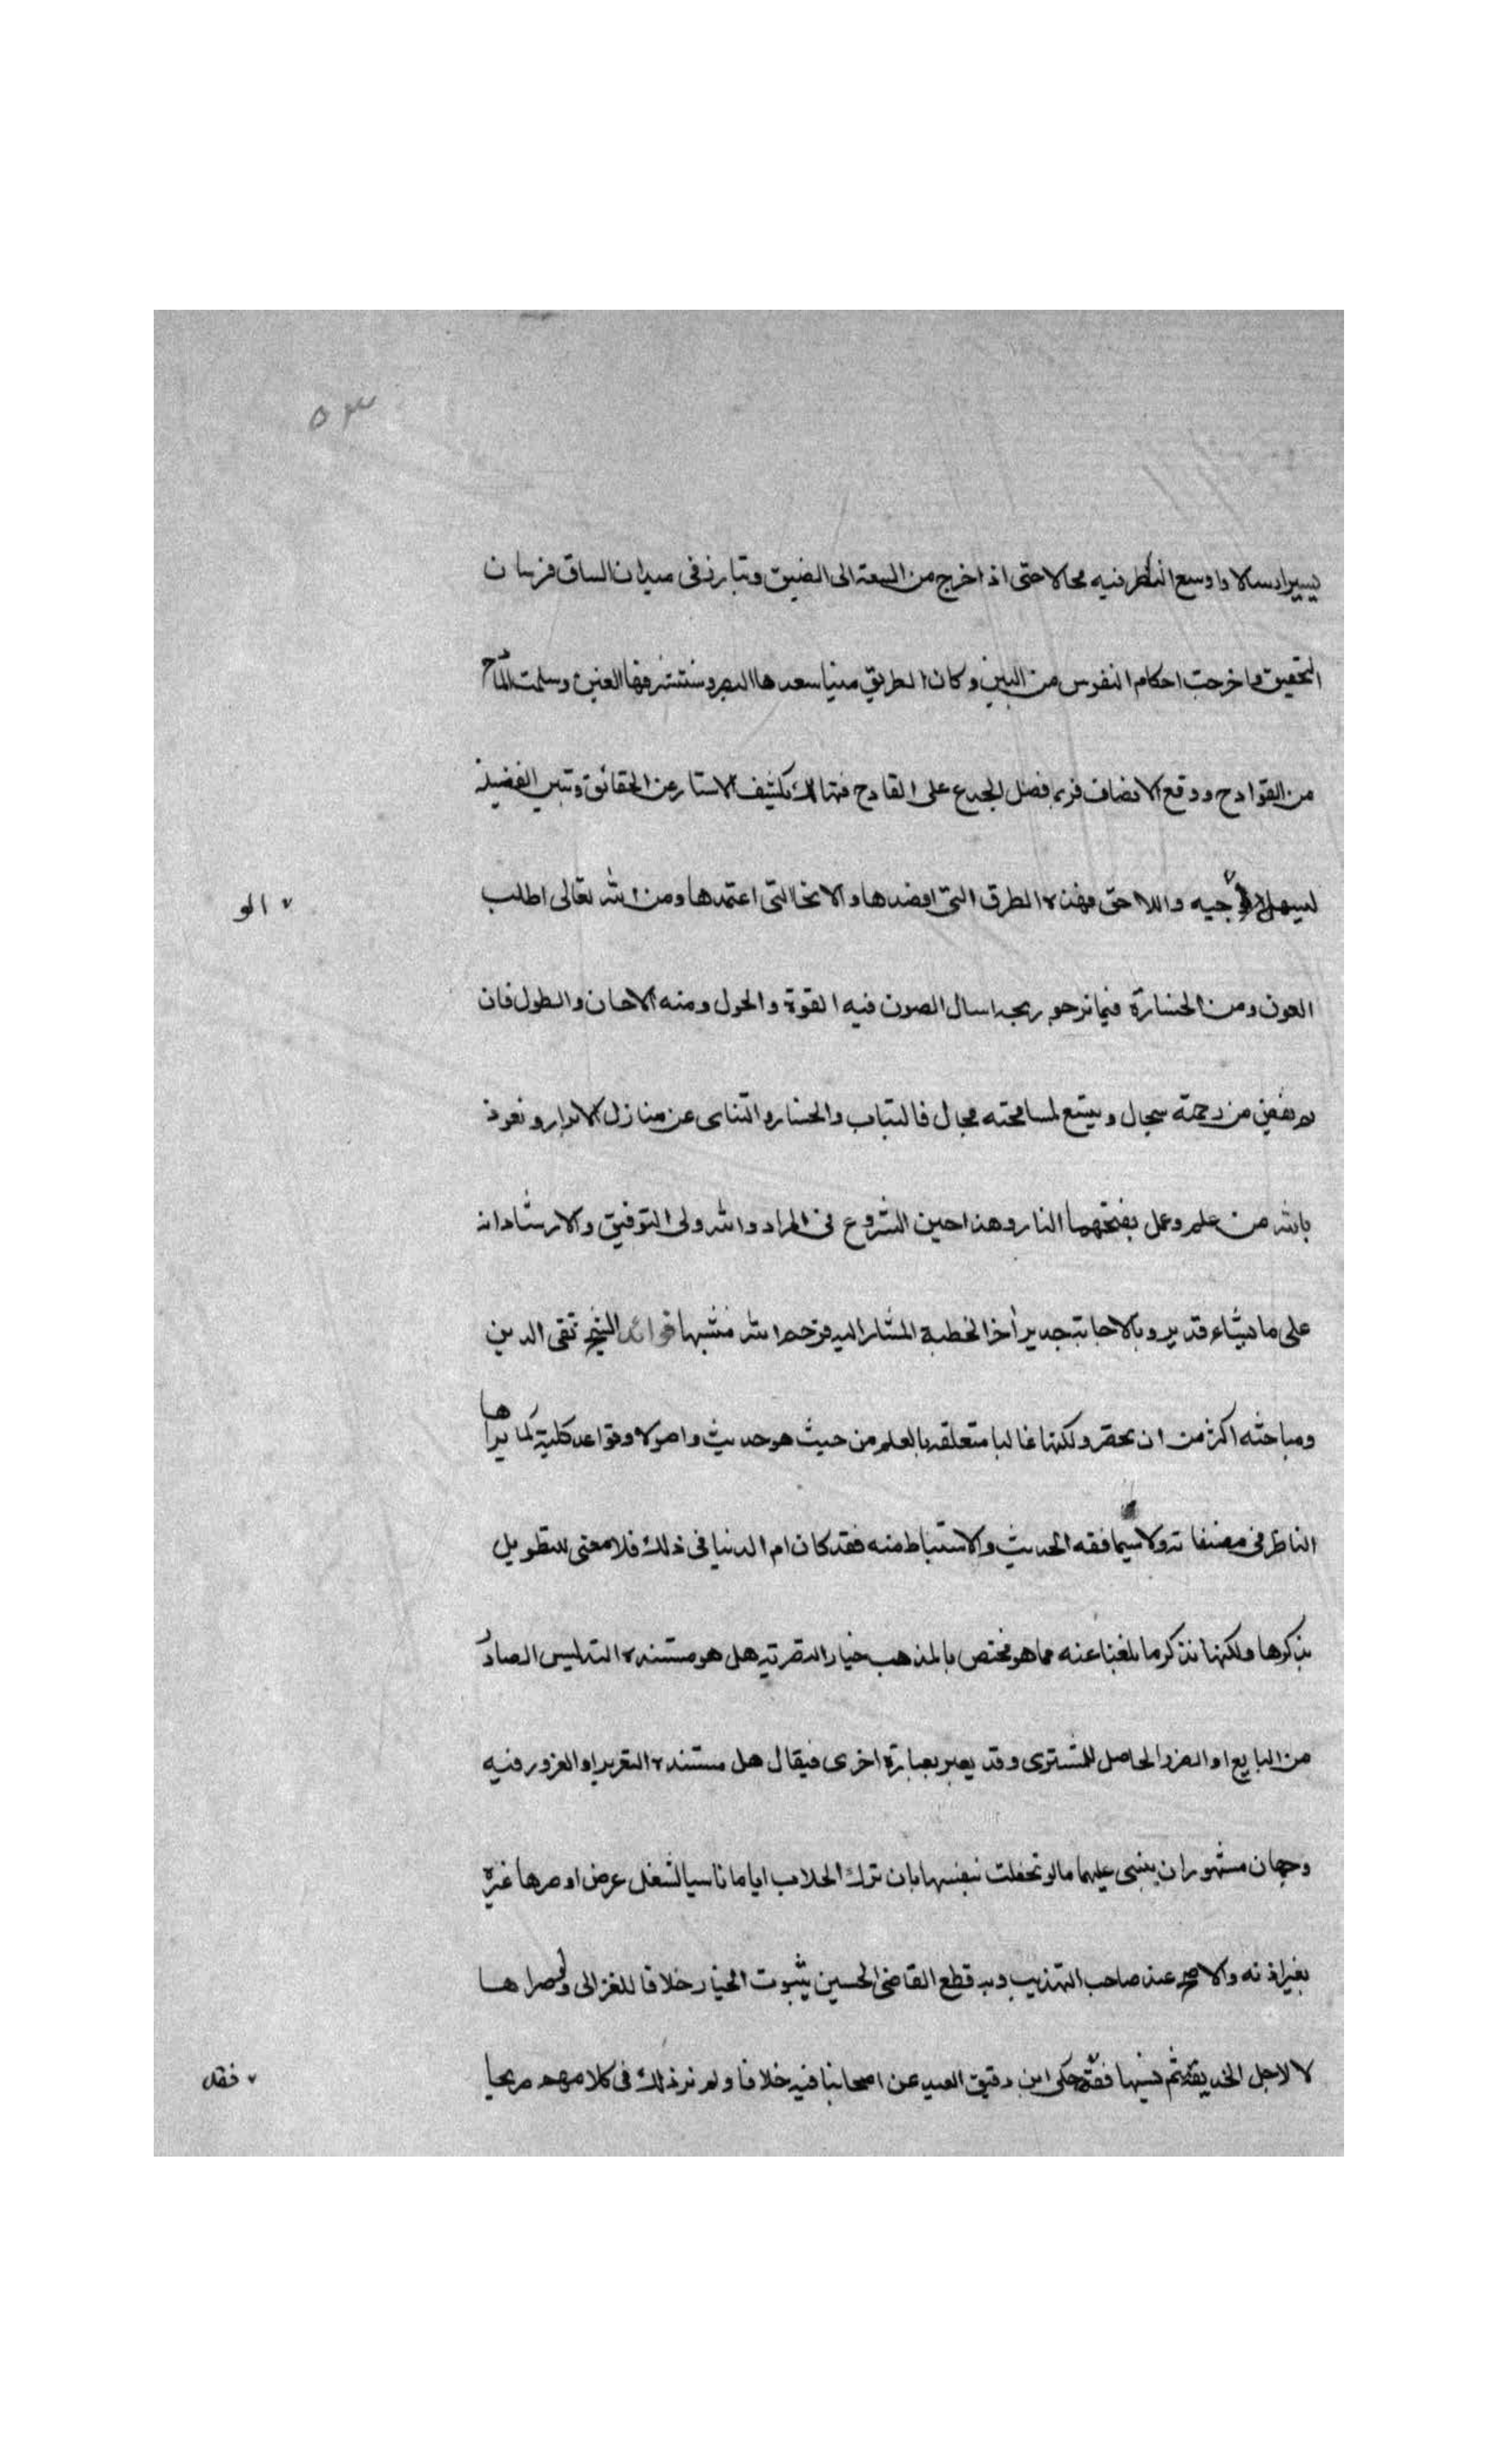 ٥٣
يسير ارسالا واوسع النظر فيه مجالا حتى اذا خرج من السعة الى الضيق وتبارز فى ميدان السباق فرسان
التحقيق واخرجت احكام النفوس من البين وكان الطريق ميتا سعدها البصر وستشرفها العين وسلمت المادح
من القوادح ووقع الانصاف فربما فضل الجدع على القادح فهنالك تكشف الاستار عن الحقائق وتبين الفضيلة
لسهل الوجيه واللاحق فهذه الطرق التى اقصدها والانحا التى اعتمدها ومن الله تعالى اطلب
٧ الو
العون ومن الخسارة فيما نرجو ربحه اسال الصون فيه القوة والحول ومنه الاحسان والطول فان
لم يفض من رحمته سجال ويتسع لمسامحته مجال فالتباب والخسار والتناى عن منازل الابرار ونعوذ
بالله من علم وعمل يفتحهما النار وهذا حين الشروع فى المراد والله ولى التوفيق والارشاد انه
على ما يشاء قدير وبالاجابة جدير أخر الخطبة المشار اليه فرحم الله منشيها فوائد الشيخ تقى الدين
ومباحثه اكثر من ان يحصر ولكنها غالبا متعلقه بالعلم من حيث هو حديث واصولا وقواعد كلية كما يراها
الناظر فى مصنفاته ولا سيما فقه الحديث والاستنباط منه فقد كان امام الدنيا فى ذلك فلا معنى للتطويل
بذكرها ولكنها نذكر ما بلغنا عنه مما هو مختص بالمذهب خيار التصرية هل هو مستنده التدليس الصادر
من البايع او الضرر الحاصل للمشترى وقد يعبر بعبارة اخرى فيقال هل مستنده التغرير او الغرور فيه
وجهان مشهوران ينبنى عليهما ما لو تحفلت بنفسها بان ترك الحلاب اياما ناسيا لشغل عرض او صرها غيره
بغير اذنه والاصح عند صاحب التهذيب وبه قطع القاضى الحسين يثبوت الخيار خلافا للغزالى ولو صراها
لا لاجل الخديعة ثم نسيها فقد حكى ابن دقيق العيد عن اصحابنا فيه خلافا ولم نر ذلك فى كلامهم صريحا
٧ فقد